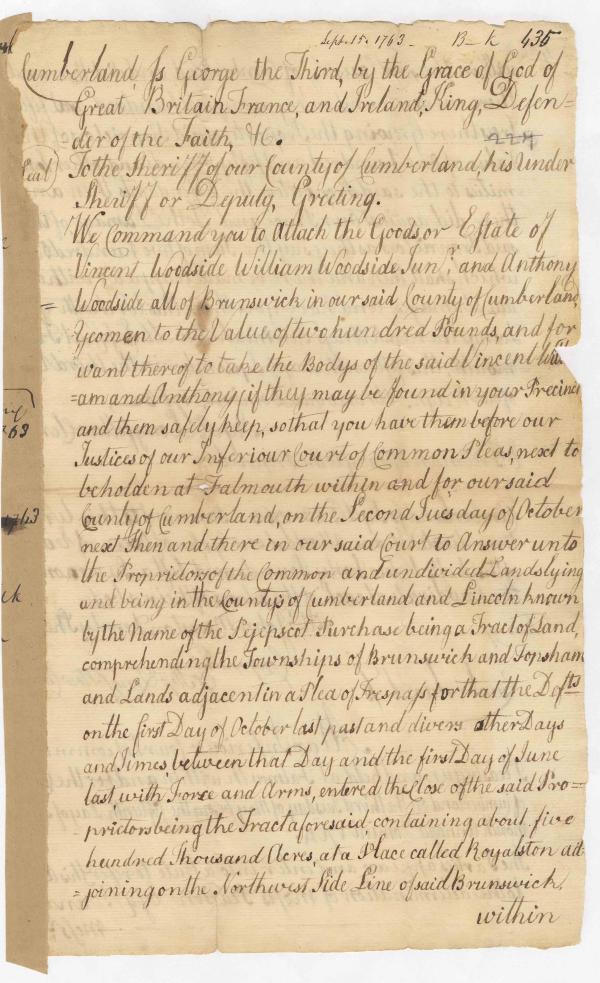 Sept. 15. 1763 - B-k 435
Cumberland, Ss George the Third, by the Grace of God of
Great Britain France, and Ireland, King, Defen=
=der of the Faith, &c.
224
Seal
To the Sheriff of our County of Cumberland, his under
Sheriff or Deputy, Greeting.
We Command you to Attach the Goods or Estate of
Vincent Woodside William Woodside Junr. and Anthony
= Woodside all of Brunswick in our said County of Cumberland,
Yeomen to the Value of two hundred Pounds, and for
want thereof to take the Bodys of the said Vincent Will
=am and Anthony (if they may be found in your Precinct
and them safely keep, so that you have them before our
Justices of our Inferiour Court of Common Pleas, next to
be holden at Falmouth within and for our said
County of Cumberland, on the Second Tuesday of October
next Then and there in our said Court to Answer unto
the Proprietors of the Common and undivided Lands lying
and being in the Countys of Cumberland and Lincoln known
by the Name of the Pejepscot Purchase being a Tract of Land,
comprehending the Townships of Brunswick and Topsham
and Lands adjacent in a Plea of Trespass for that the Defts
on the first Day of October last past and divers other Days
and Times, between that Day and the first Day of June
last, with Force and Arms, entered the Close of the said Pro=
-prietors being the Tract aforesaid, containing about five
hundred Thousand Acres, at a Place called Royalston ad=
=joining on the Northwest Side Line of said Brunswick,
within
63
1763